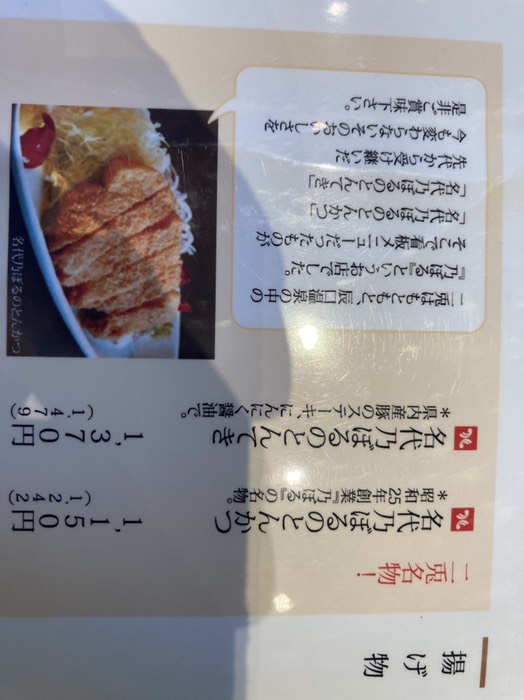 揚げ物
二兎名物!
名代乃ぼるのとんかつ
1,150円
*昭和25年創業『乃ぼる』の名物。
(1,242)
名代乃ぼるのとんてき
1,370円
*県内産豚のステーキ、にんにく醤油で。
(1,479)
二兎はもともと、辰口温泉の中の
『乃ぼる』というお店でした。
そこで看板メニューだったものが
「名代乃ぼるのとんかつ」
「名代乃ぼるのとんてき」
先代から受け継いだ
今も変わらないそのおいしさを
是非ご賞味下さい。
名代乃ぼるのとんかつ